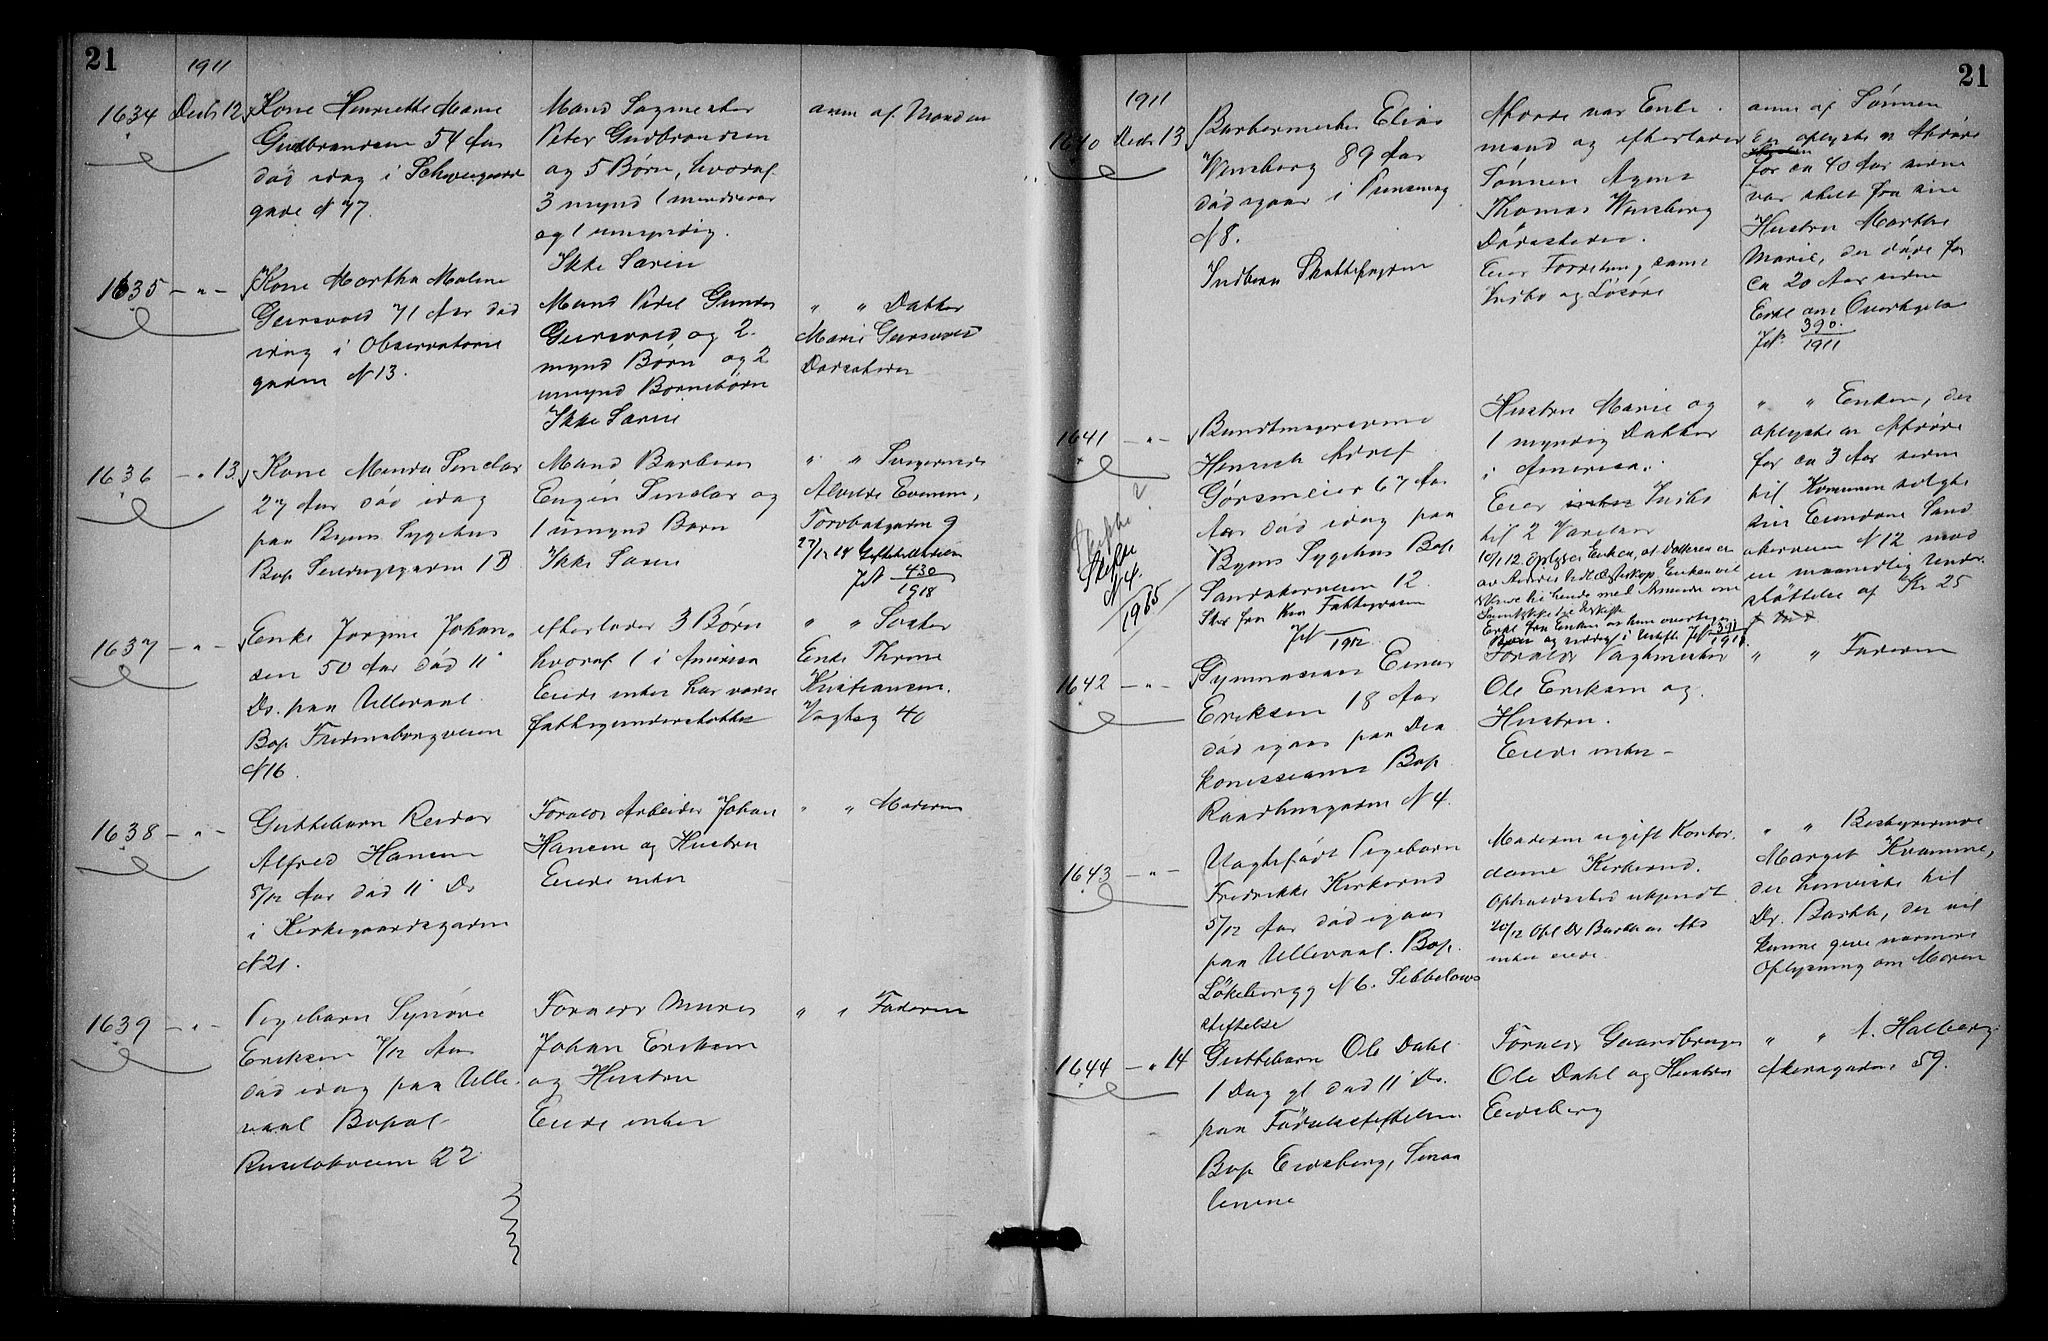 21
1911
1634 Decb 12 Kone Henriette Marie
Gudbrandsen 54 Aar
död idag i Schweigaards
gade N 77.
Mand Sagmester
Peter Gudbrandsen
og 5 Børn, hvoraf
3 mynd 1 mindreaar
og 1 umyndig.
Ikke Særeie
anm af Manden
1635 - " - Kone Martha Maline
Geirsvold 71 Aar död
idag i Observatorie
gaden N 13.
Mand Peder Gunder
Geirsvold og 2
mynd Børn og 2
umynd Børnebörn
Ikke Særeie
" " Datter
Marie Geirsvold
Dödsstedet
1636 - " 13 Kone
27 Aar död idag
paa Byens Sygehus
Bop 1 B
Mand Barberer
og
1 umynd Barn
Ikke Særeie
" " Svigerinde
Torvbakgaden 9
430
1918
1637 - " - Enke Jorgine Johan-
sen 50 Aar död 11'
Ds. paa Ullevaal
Bop Fredensborgveien
N 16.
efterlader 3 Børn
hvoraf 1 i Amerika
Eiede intet har været
fattigunderstöttet
" " Søster
Enke Thrine
Kristiansen.
Vogtsg 40
1638 - " - Guttebarn Reidar
Alfred Hansen
5/12 Aar död 11' Ds
i Kirkegaardsgaden
N 21.
Foreldr Arbeider Johan
Hansen og Hustru
Eiede intet
" " Moderen
1639 - " - Pigebarn Synöve
Eriksen 7/12 Aar
död idag paa Ulle-
vaal Bopæl
Ruselökveien 22
Forældr Murer
Johan Eriksen
og Hustru
Eiede intet
" " Faderen
21
1911
1640 Decb 13 Barbermester Elias
Wensberg 89 Aar
död igaar i Prinsensg
N 8.
Indbern Skattefogden
Afdøde var Enke-
mand og efterlader
Sönnen Agent
Thomas Wensberg
Dödsstedet.
Eier Forretning samt
Indbo og Lösöre
anm af Sönnen
oplyste at Afdöde
for ca 40 Aar siden
var skilt fra sin
Hustru Marthe
Marie, der döde for
ca 20 Aar siden
Erkl om Overtagelse
Jfr 390
1911
1641 - " - Bundtmagersvend
Henrich Adolf
Görsmeier 67 Aar
Aar död idag paa
Byens Sygehus Bop
Sandakerveien 12.
1912
Skifte
N 4
1915
Hustru Marie og
1 myndig Datter
i Amerika.
Eier Indbo
til 2 Værelser
10/1 12 oplyser Enken at Datteren er
391
1911
" " Enken, der
oplyste at Afdöde
for ca 3 Aar siden
til Kommunen solgte
sin Eiendom Sand
akerveien N 12 mod
en maanedlig Under-
støttelse af Kr 25
1642 - " - Gymnasiast Einar
Eriksen 18 Aar
död igaar paa Dia
konissianst Bop
Raadhusgaden N 4.
Foreldr Vagtmester
Ole Eriksen og
Hustru.
Eiede intet -
" " Faderen
1643 - " - Uægtefödt Pigebarn
Fredrikke Kirkerud
5/12 Aar död igaar
paa Ullevaal. Bop.
Lökkebergg N 6. Sebbelows
stiftelse
Moderen ugift Kontor-
dame Kirkerud.
Opholdssted ukjendt
20/12 Opl Dr Barth at Afd
intet eiede.
" " Bestyrerinde
Margit Kvamme,
der henviste til
Dr. Barth, der vil
kunne give nærmere
Oplysning om Moren
1644 - " 14 Guttebarn Ole Dahl
1 Dag gl död 11' Ds.
paa Födselsstiftelsen
Bop Eidsberg, Smaa
lenene
Foreldr Gaardbruger
Ole Dahl og Hustru
Eidsberg
" " A. Halberg
Akersgaden 59.